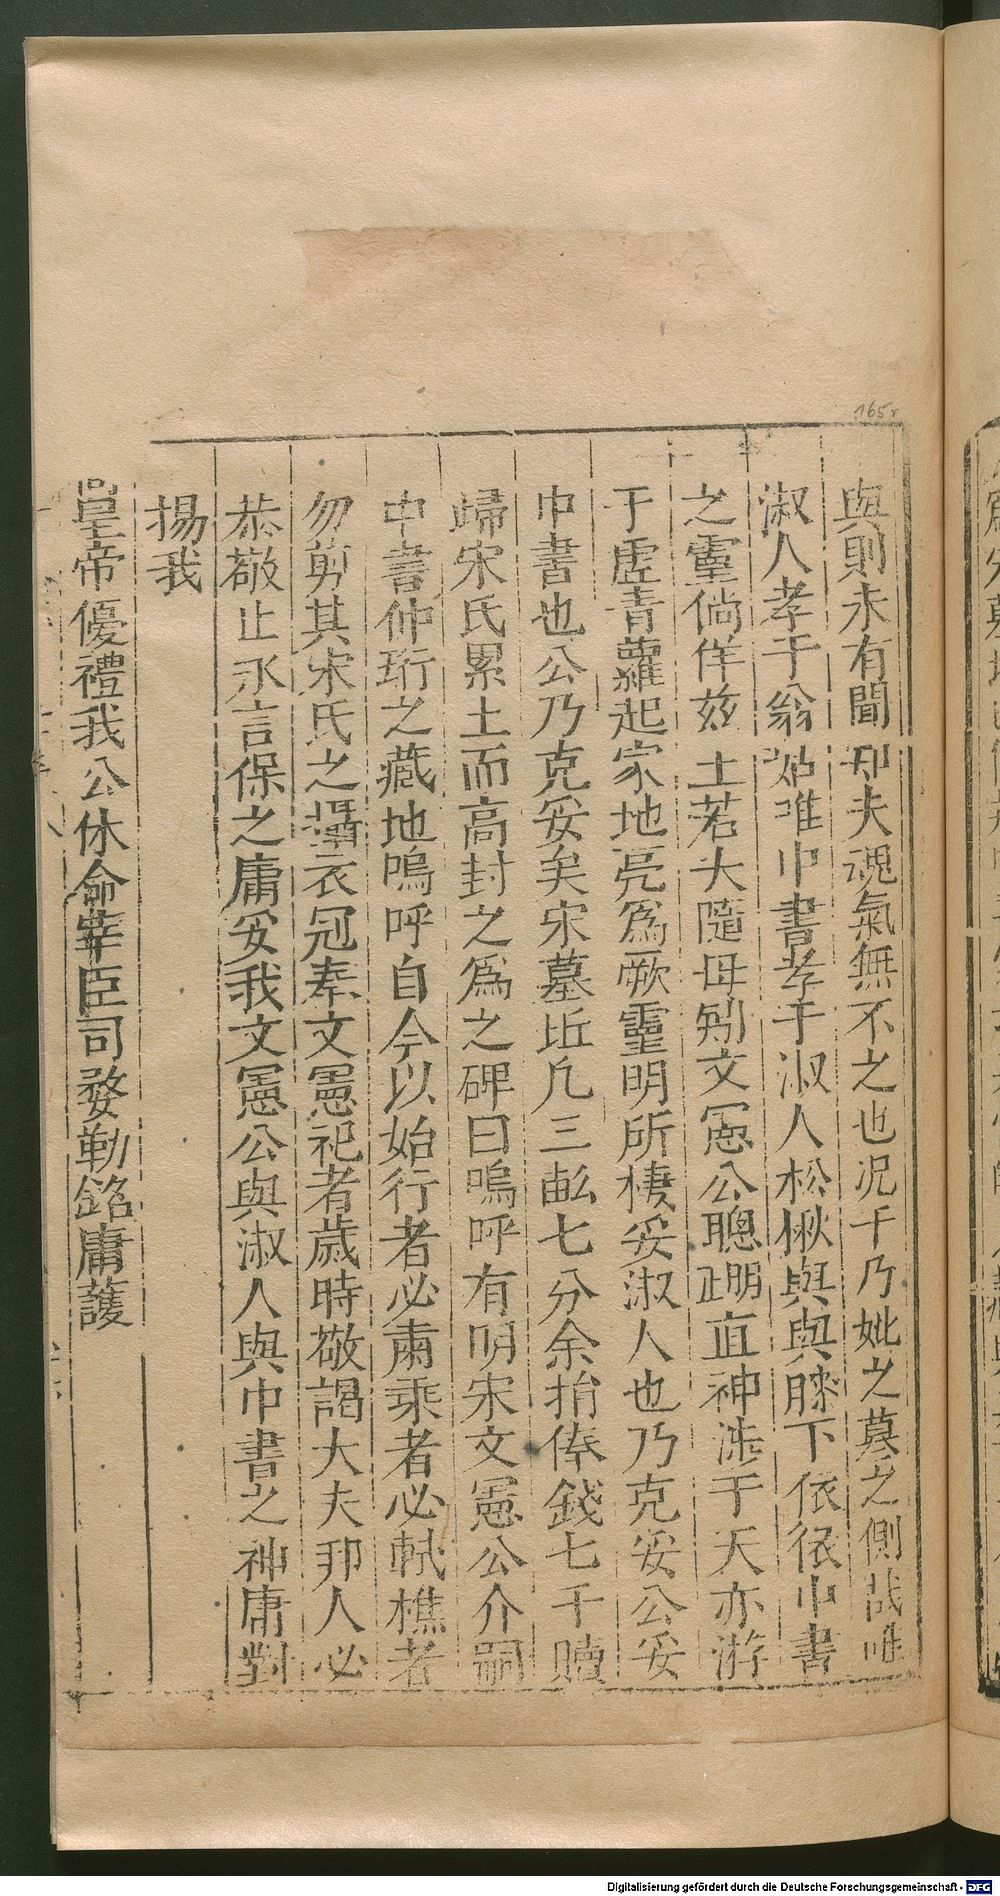 165r
與則未有聞却夫魂氣無不之也況于乃妣之墓之側哉唯
淑人孝于翁姑唯中書孝于淑人松楸與與膝下依依中書
之靈倘佯兹土若大隨母矧文憲公聰朙直神洙于天亦游
于虛青蘿起家地亮為厥靈明所棲妥淑人也乃克妥公妥
中書也公乃克妥矣宋墓坵凢三畝七分余捐俸錢七千贖
歸宋氏累土而高封之為之碑曰嗚呼有明宋文憲公介嗣
中書仲珩之藏地嗚呼自今以始行者必肅乘者必軾樵者
勿剪其宋氏之攝衣冠奉文憲祀者歲時敬謁大夫邦人必
恭敬止永言保之庸妥我文憲公與淑人與中書之神庸對
揚我
皇帝優禮我公休命華臣司婺勒銘庸護
Digitalisierung gefördert durch die Deutsche Forschungsgemeinschaft - DFG